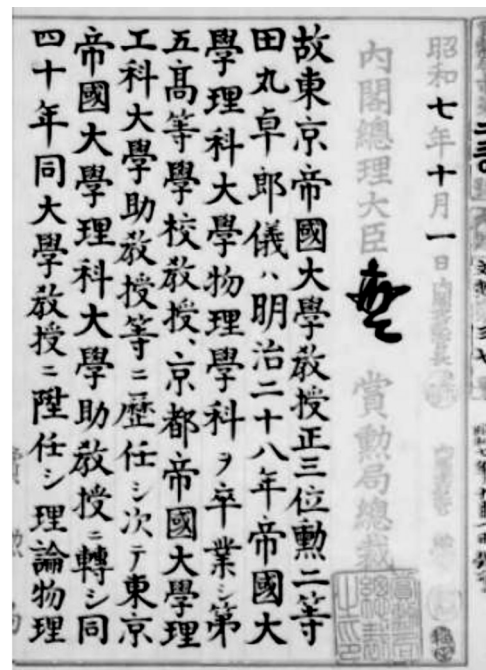 昭和七年十月一日
內閣總理大臣 賞勲局總裁
故東京帝國大學教授正三位勲二等
田丸卓郎儀ハ明治二十八年帝國大
學理科大學物理學科ヲ卒業シ第
五髙等學校教授、京都帝國大學理
工科大學助教授等ニ歷任シ次テ東京
帝國大學理科大學助教授ニ轉シ同
四十年同大學教授ニ陞任シ理論物理